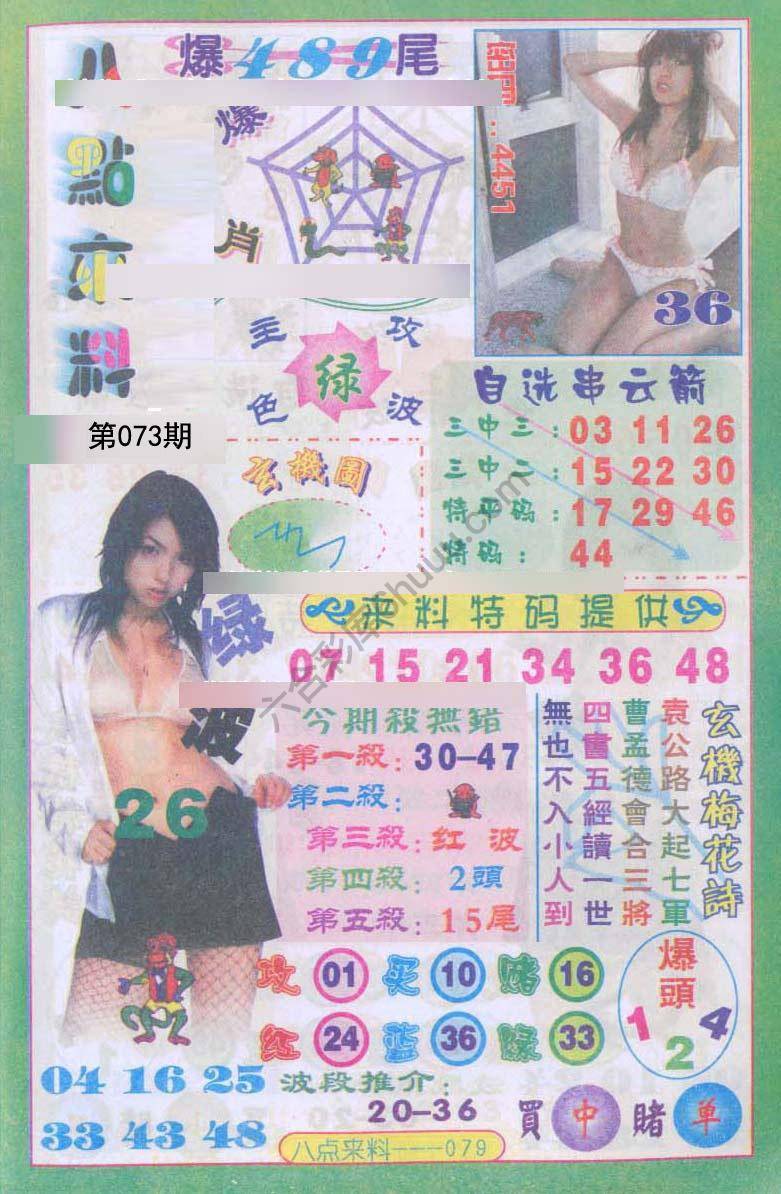 八點來料
爆489尾
爆肖
4451
36
主攻
绿
色波
自选串云箭
三中三：03 11 26
三中二：15 22 30
特平码：17 29 46
特码：44
第073期
玄機圖
绿波
26
来料特码提供
07 15 21 34 36 48
今期殺無錯
第一殺：30-47
第二殺：
第三殺：红波
第四殺：2頭
第五殺：15尾
玄機梅花詩
袁公路大起七軍
曹孟德會合三將
四書五經讀一世
無也不入小人到
攻 01 买 10 赌 16
红 24 蓝 36 绿 33
爆頭
1 2 4
04 16 25
33 43 48
波段推介：
20-36
買中賭单
八点来料---079
六合彩库6huuu.com